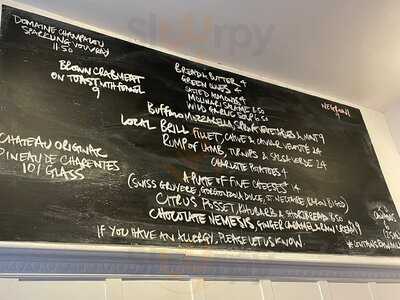 DOMAINE CHAMPALOU
SPARKLING VOUVRAY
11.50
BROWN CRABMEAT
ON TOAST WITH FENNEL
9
BREAD & BUTTER 4
GREEN OLIVES 4
SALTED ALMONDS 4
MOLINARI SALAME 1.50
WILD GARLIC SOUP 6.50
BUFFALO MOZZARELLA, SPRING VEGETABLES & MINT 9
LOCAL BRILL FILLET, CHIVE & CAVIAR VELOUTÉ 28
RUMP OF LAMB, TURNIPS & SALSA VERDE 24
CHARLOTTE POTATOES 4
A PLATE OF FINE CHEESES 14
(SWISS GRUYERE, GORGONZOLA DOLCE,
CITRUS POSSET, RHUBARB & SHORTBREAD 8.50
CHOCOLATE NEMESIS, GINGER CARAMEL & CREAM 9
IF YOU HAVE AN ALLERGY, PLEASE LET US KNOW
CHATEAU ORIGNAC
PINEAU DE CHARENTES
10/GLASS